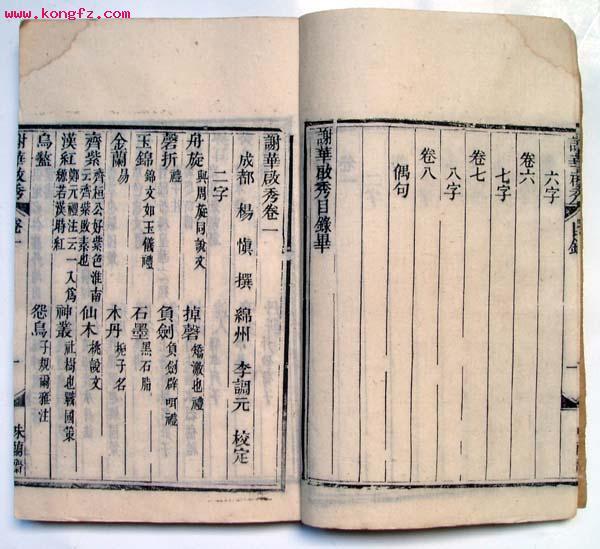 www.kongfz.com
謝華啟秀 目錄 一
六字
卷六
七字
卷七
八字
卷八
偶句
謝華啟秀目錄畢
謝華啟秀卷一
成都 楊慎 撰 綿州 李調元 校定
二字
舟旋 與周旋同說文 掉磬 矯激也禮
磬折 禮 負劍 負劍辟咡禮
玉錦 錦文如玉儀禮 石墨 黑石脂
金蘭 易 木丹 梔子名
齊紫 齊桓公好紫色淮南云齊紫敗素也 仙木 桃說文
漢紅 鄭元禮注云一入爲縓若漢時紅 神叢 社樹也戰國策
烏 怨鳥 子規爾雅注
謝華啟秀 卷一 一